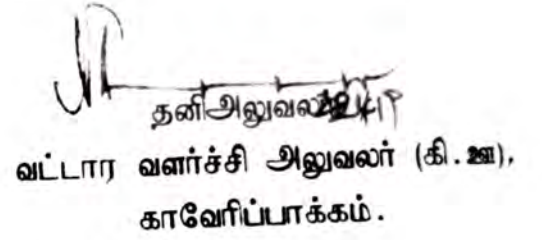 தனி அலுவலர்
வட்டார வளர்ச்சி அலுவலர் (கி.ஊ),
காவேரிப்பாக்கம்.